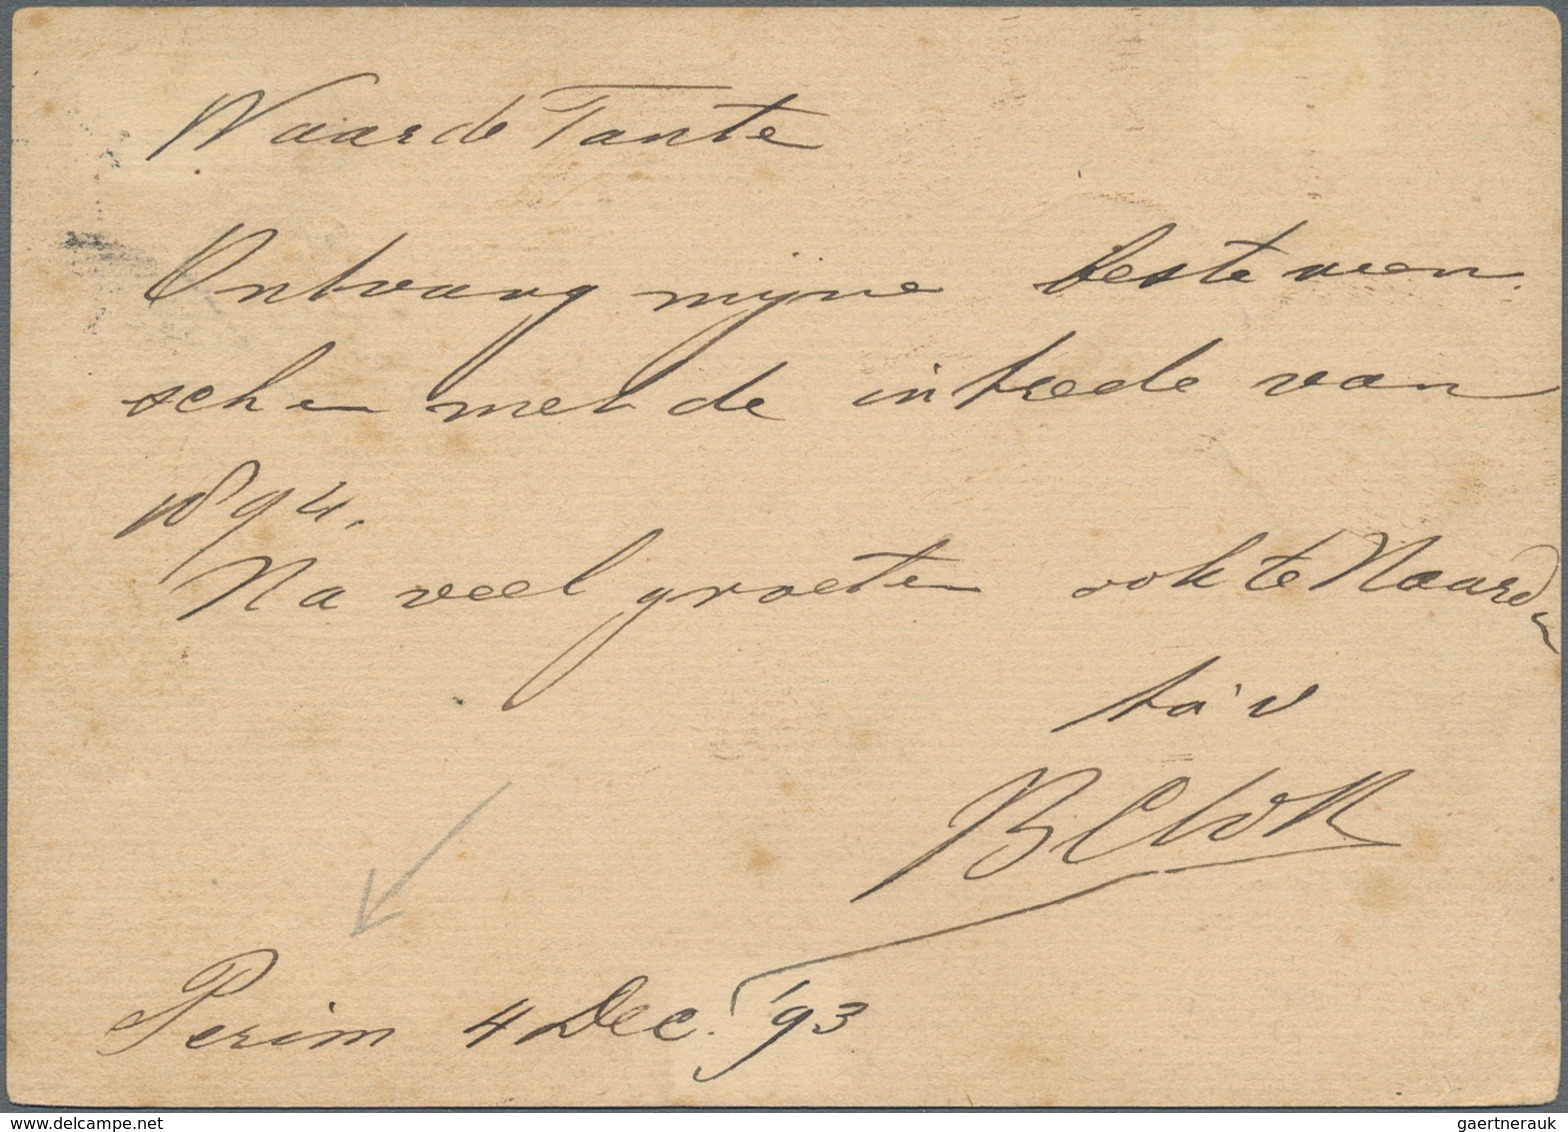 Waarde Tante
Ontvang mijne beste wen
schen met de intrede van
1894.
Na veel groeten ook te Naarden
t. à v
Perim 4 Dec. '93
delcampe.net
gaertnerauk